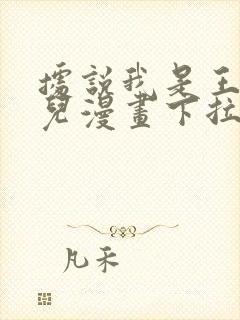 據說我是王
兒漫畫下拉
凡禾